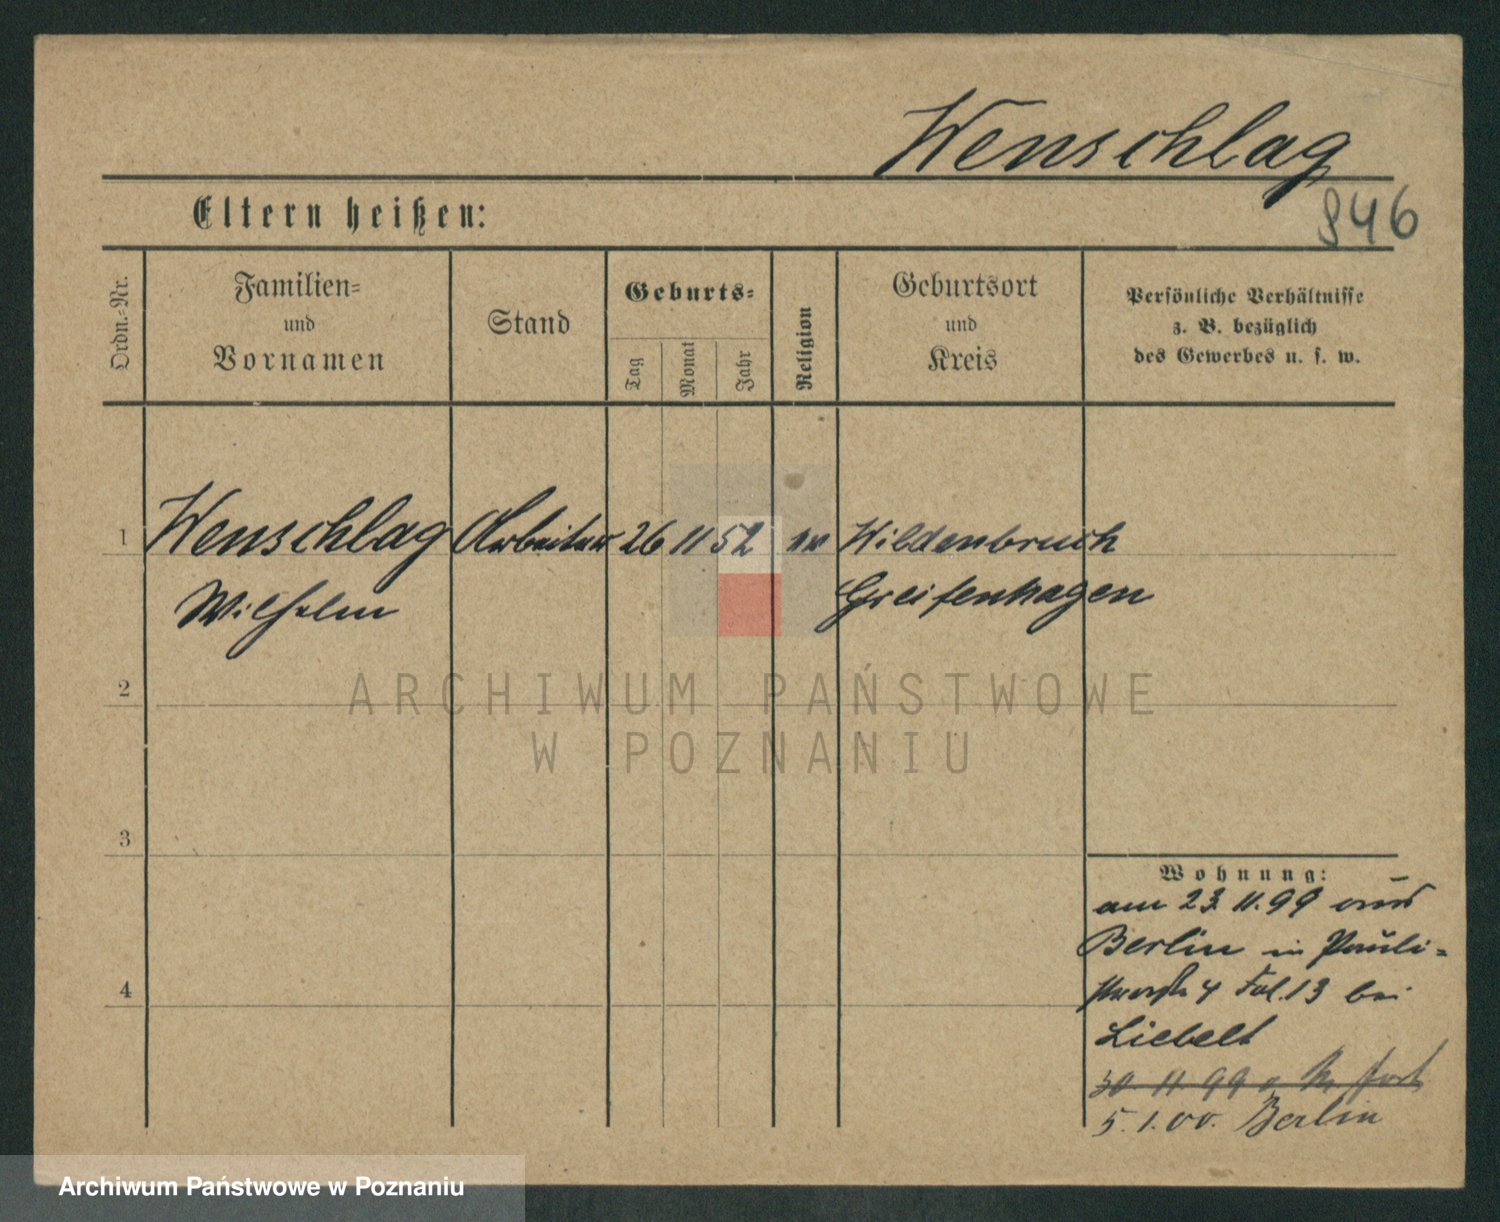 Wenschlag
946
Eltern heißen:
Ordn.-Nr.
Familien-
und
Vornamen
Stand
Geburts-
Tag
Monat
Jahr
Religion
Geburtsort
und
Kreis
Persönliche Verhältnisse
z. B. bezüglich
des Gewerbes u. s. w.
1 Wenschlag Arbeiter 26 11 52 ev Wildenbruch
Wilhelm Greifenhagen
2
ARCHIWUM PAŃSTWOWE
W POZNANIU
3
4
Wohnung:
am 23. 11. 99 aus
Berlin in Pauli-
4 13 bei
Liebelt
30 11 99 fort
5. 1. 00. Berlin
Archiwum Państwowe w Poznaniu